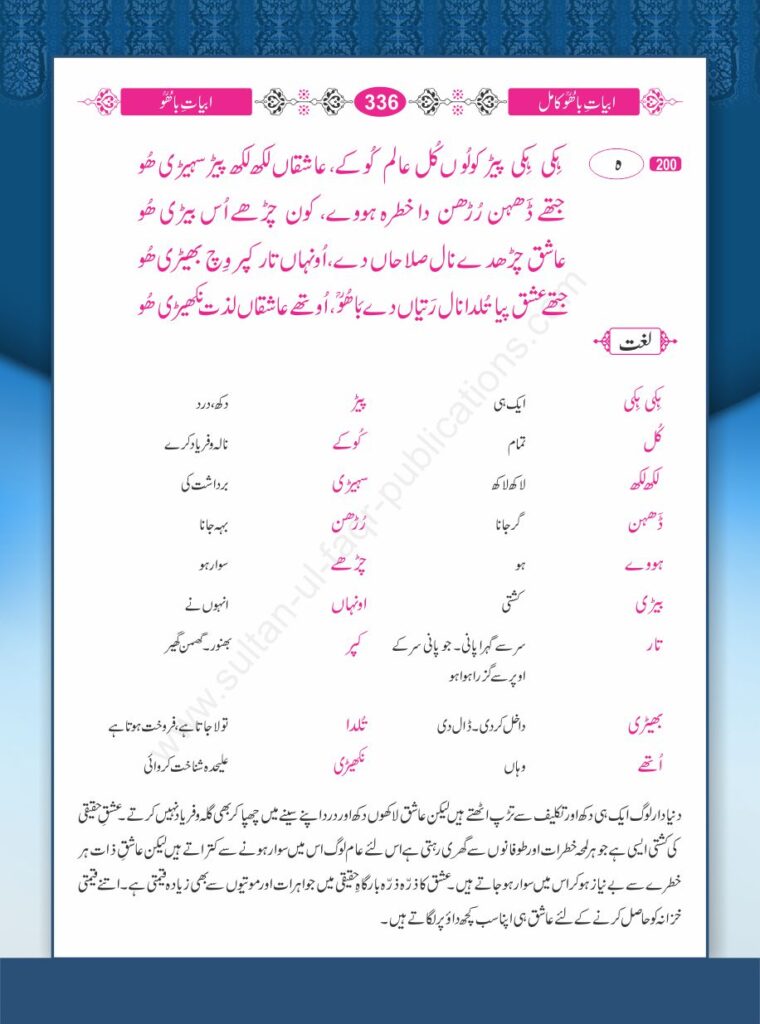 ابیاتِ باھُوؒ کامل
336
ابیاتِ باھُوؒ
200
ہ
ہِکی ہِکی پیڑ کولُوں کُل عالم کُوکے، عاشقاں لکھ لکھ پیڑ سہیڑی ھُو
جتھے ڈَھہن رُڑھن دا خطرہ ہووے، کون چڑھے اُس بیڑی ھُو
عاشق چڑھدے نال صلاحاں دے، اُونہاں تار کپر وِچ بھیڑی ھُو
جتھے عشق پیا تُلدا نال رَتیاں دے بَاھُوؒ، اُوتھے عاشقاں لذت نکھیڑی ھُو
لغت
ہِکی ہِکی ایک ہی پیڑ دکھ، درد
کُل تمام کُوکے نالہ و فریاد کرے
لکھ لکھ لاکھ لاکھ سہیڑی برداشت کی
ڈَھہن گر جانا رُڑھن بہہ جانا
ہووے ہو چڑھے سوار ہو
بیڑی کشتی اونہاں انہوں نے
تار سر سے گہرا پانی۔ جو پانی سر کے کپر بھنور۔ گھمن گھیر
اوپر سے گزرا ہوا ہو
بھیڑی داخل کردی۔ ڈال دی تُلدا تولا جاتا ہے، فروخت ہوتا ہے
اُتھے وہاں نکھیڑی علیحدہ شناخت کروائی
دنیا دار لوگ ایک ہی دکھ اور تکلیف سے تڑپ اٹھتے ہیں لیکن عاشق لاکھوں دکھ اور درد اپنے سینے میں چھپا کر بھی گلہ و فریاد نہیں کرتے۔ عشقِ حقیقی
کی کشتی ایسی ہے جو ہر لمحہ خطرات اور طوفانوں سے گھری رہتی ہے اس لئے عام لوگ اس میں سوار ہونے سے کتراتے ہیں لیکن عاشقِ ذات ہر
خطرے سے بے نیاز ہو کر اس میں سوار ہو جاتے ہیں۔ عشق کا ذرّہ ذرّہ بارگاہِ حقیقی میں جواہرات اور موتیوں سے بھی زیادہ قیمتی ہے۔ اتنے قیمتی
خزانہ کو حاصل کرنے کے لئے عاشق ہی اپنا سب کچھ داؤ پر لگاتے ہیں۔
www.sultan-ul-faqr-publications.com